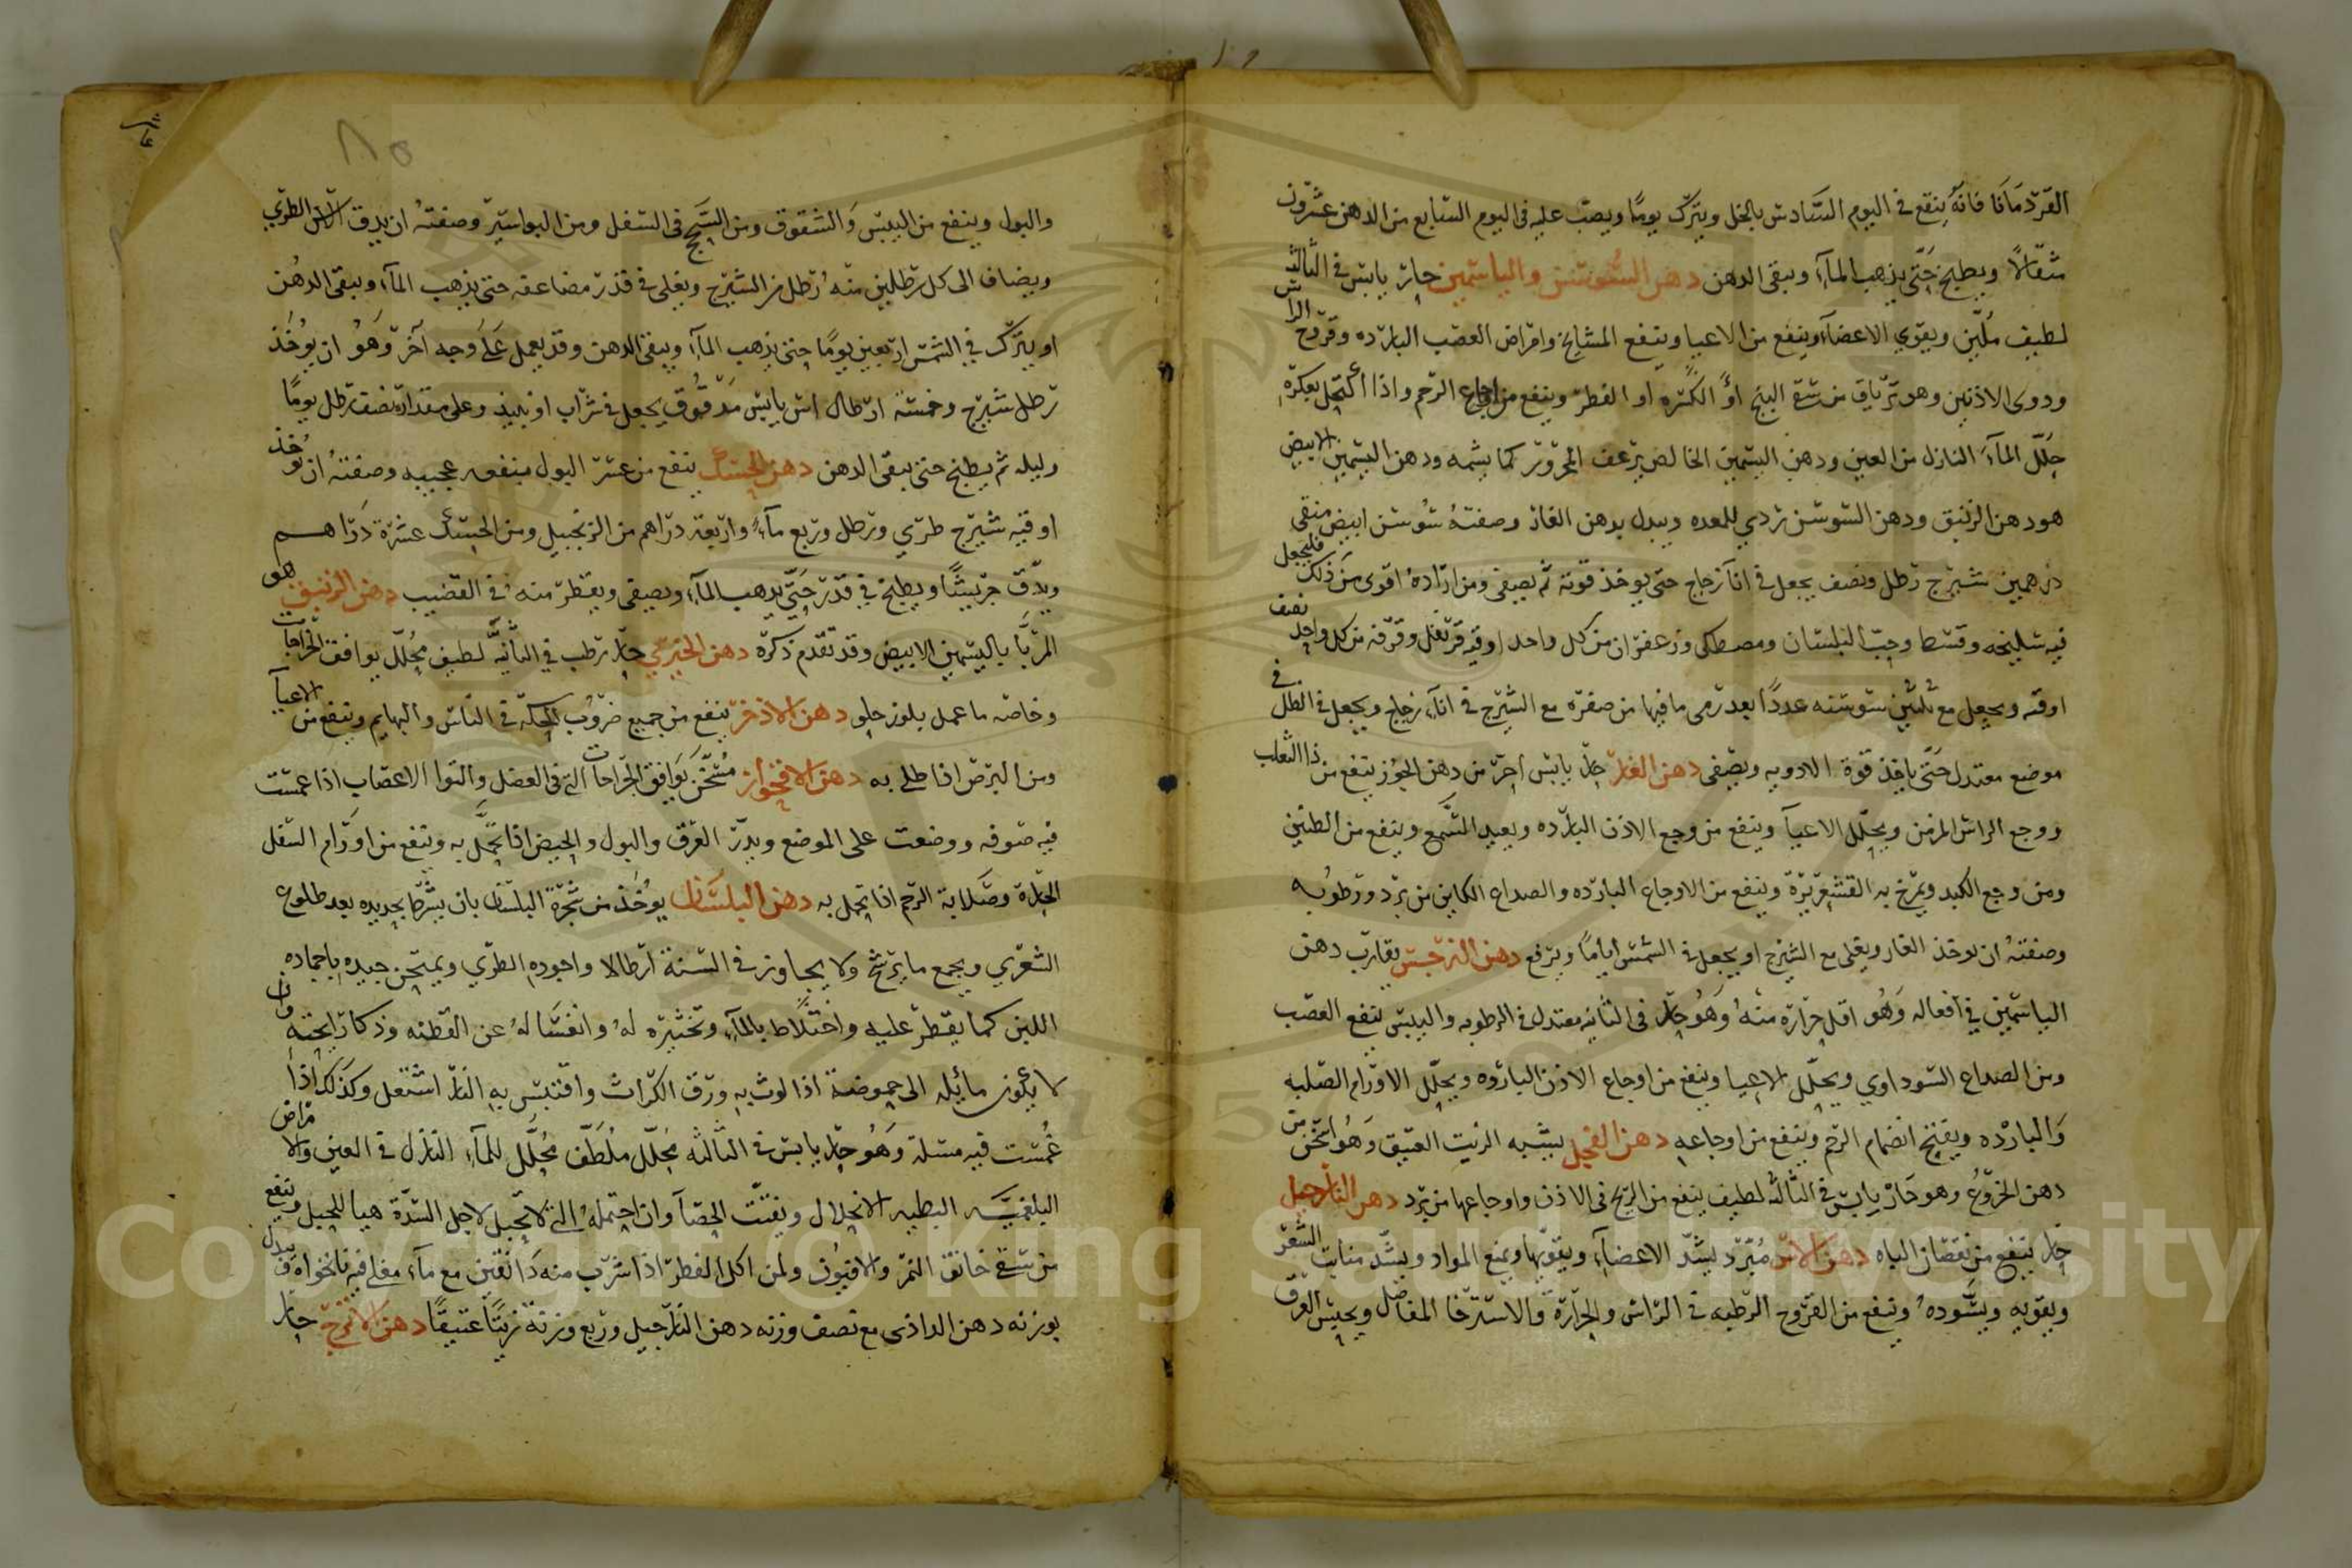 القردمانا فانه ينقع في اليوم السادس بالخل ويترك يوما ويصب عليه في اليوم السابع من الدهن عشرون
مثقالا ويطبخ حتى يذهب المآء ويبقى الدهن دهن السوسن والياسمين حار يابس في الثالثه
لطيف ملين ويقوي الاعضآء وينفع من الاعيا وينفع المشايخ وامراض العصب البارده وقروح الراس
ودوى الاذنين وهو ترياق من سقي البنج او الكسبره او الفطر وينفع من اوجاع الرحم واذا اكتحل بعكره
حلل المآء النازل من العين ودهن اليسمين الخالص يرعف المحرور كما يشمه ودهن اليسمين الابيض
هو دهن الزنبق ودهن السوسن ردي للمعده ويبدل بدهن الغار وصفته سوسن ابيض منقى
درهمين شيرج رطل ونصف يجعل في انآ زجاج حتى يوخذ قوته ثم يصفى ومن اراده اقوى من ذلك فليجعل
فيه سليخه وقسط وحب البلسان ومصطكى وزعفران من كل واحد اوقيه قرنفل وقرفه من كل واحد نصف
اوقيه ويجعل مع ثلثين سوسنه عددا بعد رمى ما فيها من صفره مع الشيرج في انآء زجاج ويجعل في الظل في
موضع معتدل حتى ياخذ قوة الادويه ويصفى دهن الغار حار يابس احر من دهن الجوز ينفع من دا الثعلب
ووجع الراس المزمن ويحلل الاعيآ وينفع من وجع الاذن البارده ويعيد السمع وينفع من الطنين
ومن وجع الكبد ويمرخ به القشعريرة وينفع من الاوجاع البارده والصداع الكاين من برد ورطوبه
وصفته ان يوخذ الغار ويغلى مع الشيرج او يجعل في الشمس اياما ويرفع دهن النرجس يقارب دهن
الياسمين في افعاله وهو اقل حرارة منه وهو حار في الثانيه معتدل في الرطوبه واليبس ينفع العصب
ومن الصداع السوداوي ويحلل الاعيا وينفع من اوجاع الاذن البارده ويحلل الاورام الصلبه
والبارده ويفتح انضمام الرحم وينفع من اوجاعه دهن الفجل يشبه الزيت العتيق وهو اسخن من
دهن الخروع وهو حار يابس في الثالثه لطيف ينفع من الريح في الاذن واوجاعها من برد دهن النارجيل
حار ينفع من نقصان الباه دهن الاس مبرد يشد الاعضآء ويقويها ويمنع المواد ويشد منابت الشعر
ويقويه ويسوده وينفع من القروح الرطبه في الراس والحرارة والاسترخا المفاصل ويحبس العرق
٨٥
والبول وينفع من اليبس والشقوق ومن السحج في السفل ومن البواسير وصفته ان يدق الاس الطري
ويضاف الى كل رطلين منه رطل من الشيرج ويغلى في قدر مضاعفه حتى يذهب المآء ويبقى الدهن
او يترك في الشمس اربعين يوما حتى يذهب المآء ويبقى الدهن وقد يعمل على وجه آخر وهو ان يؤخذ
رطل شيرج وخمسة ارطال اس يابس مدقوق يجعل في شراب او نبيذ وعلى مقداره نصف رطل يوما
وليله ثم يطبخ حتى يبقى الدهن دهن الحسك ينفع من عسر البول منفعه عجيبه وصفته ان يوخذ
اوقيه شيرج طري ورطل وربع مآء واربعة دراهم من الزنجبيل ومن الحسك عشرة دراهم
ويدق جريشا ويطبخ في قدر حتى يذهب المآء ويصفى ويقطر منه في القضيب دهن الزنبق هو
المربا باليسمين الابيض وقد تقدم ذكره دهن الخيري حار رطب في الثانيه لطيف محلل يوافق الجراحات
وخاصه ما عمل بلوز حلو دهن الاذخر ينفع من جميع ضروب الحكه في الناس والبهايم وينفع من الاعيآ
ومن البرص اذا طلي به دهن الاقحوان مسخن يوافق الجراحات التي في العضل والتوا الاعصاب اذا غمست
فيه صوفه ووضعت على الموضع ويدر العرق والبول والحيض اذا تحمل به وينفع من اورام السفل
الحارة وصلابة الرحم اذا تحمل به دهن البلسان يوخذ من شجرة البلسان بان يشرط بحديده بعد طلوع
الشعري ويجمع ما يرشح ولا يجاوز في السنة ارطالا واجوده الطري ويمتحن جيده باجماده
اللبن كما يقطر عليه واختلاط بالمآء وتخثيره له وانغساله عن القطنه وذكا رايحته وان
لا يكون مائله الى حموضة اذا لوث به ورق الكراث واقتبس به النار اشتعل وكذلك اذا
غمست فيه مسلة وهو حار يابس في الثالثه محلل ملطف محلل للمآء النازل في العين والامراض
البلغميه البطيه الانحلال ويفتت الحصآ وان احتمله التي لا تحبل لاجل السدة هيا للحبل وينفع
من سقي خانق النمر والافيون ولمن اكل الفطر اذا شرب منه دانقين مع مآء مغلي فيه نانخواه وبدل
بوزنه دهن الداذى مع نصف وزنه دهن النارجيل وربع وزنة زيتا عتيقا دهن الاترج حار